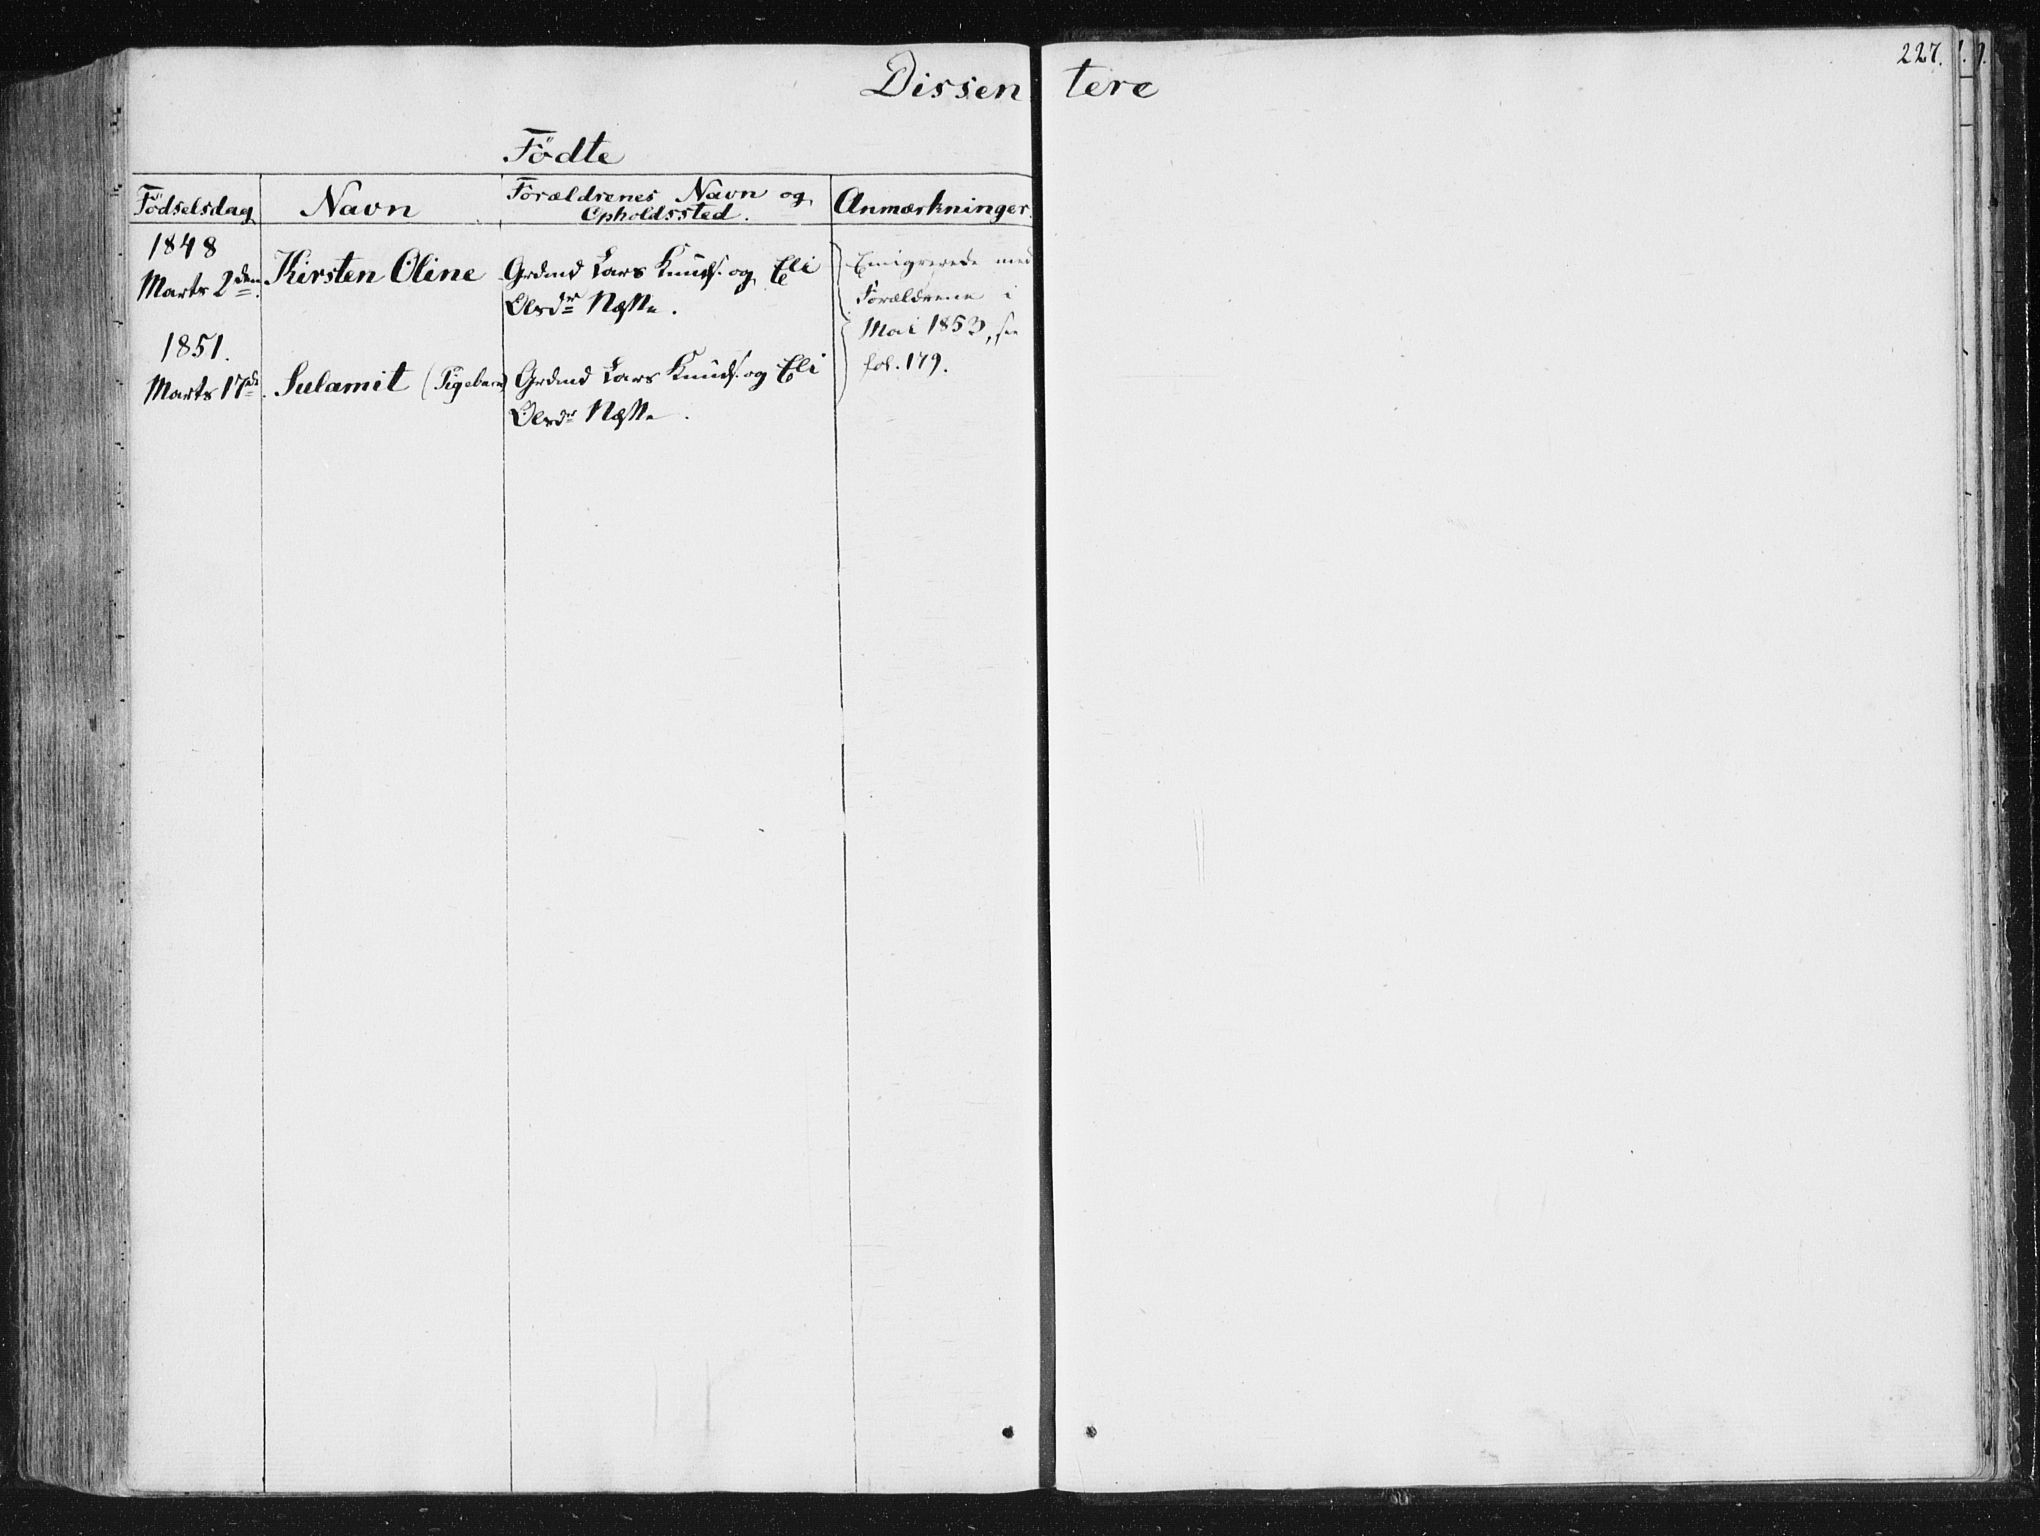 227.
Dissentere
Fødte
Fødselsdag
Navn
Forældrenes Navn og
Opholdssted.
Anmærkninger.
1848
Marts 2den.
Kirsten Oline
Grdmd Lars Knuds. og Eli
Olsdr
Emigrerede med
Forældrene i
Mai 1853, see
fol. 179.
1851.
Marts 17de.
Sulamit (Pigebarn)
Grdmd Lars Knuds. og Eli
Olsdr